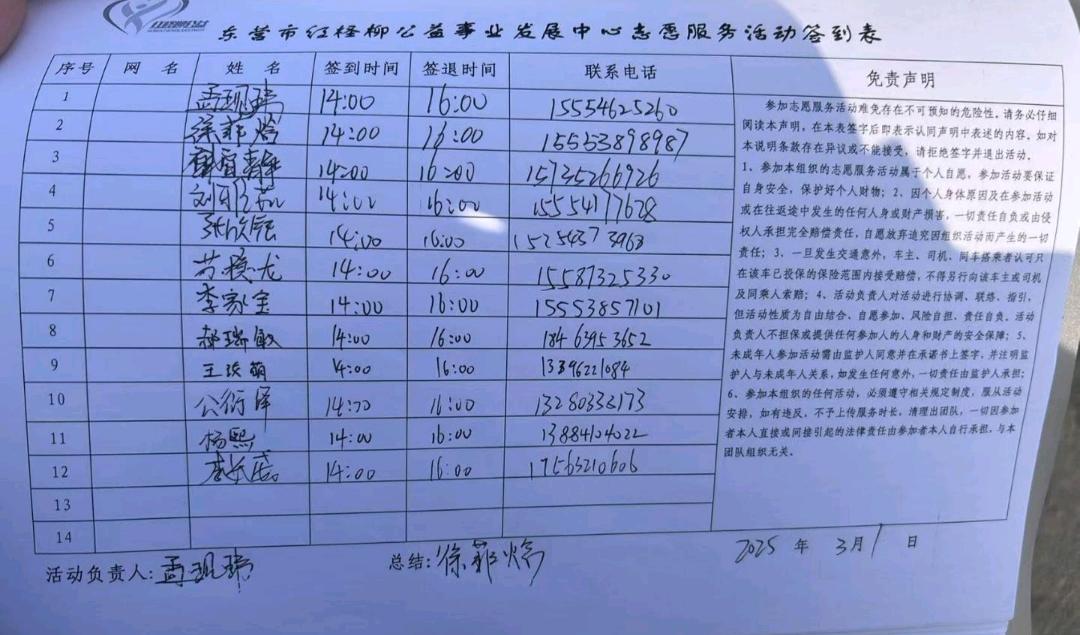 东营市红柽柳公益事业发展中心志愿服务活动签到表
序号 网 名 姓 名 签到时间 签退时间 联系电话 免责声明
1 孟现瑞 14:00 16:00 15554625260
2 徐菲焓 14:00 16:00 15553898987
3 14:00 16:00 15735266926
4 14:00 16:00 15554177628
5 14:00 16:00 15254373968
6 苏换龙 14:00 16:00 15587325330
7 李家宝 14:00 16:00 15553857101
8 郝瑞敏 14:00 16:00 18463953652
9 14:00 16:00 13396221084
10 公衍泽 14:00 16:00 13280333173
11 杨熙 14:00 16:00 13884104022
12 14:00 16:00 17563210606
13
14
参加志愿服务活动难免存在不可预知的危险性。请务必仔细
阅读本声明,在本表签字后即表示认同声明中表述的内容。如对
本说明条款存在异议或不能接受,请拒绝签字并退出活动。
1、参加本组织的志愿服务活动属于个人自愿,参加活动要保证
自身安全,保护好个人财物;2、因个人身体原因及在参加活动
或在往返途中发生的任何人身或财产损害,一切责任自负或由侵
权人承担完全赔偿责任,自愿放弃追究因组织活动而产生的一切
责任;3、一旦发生交通意外,车主、司机、同车搭乘者认可只
在该车已投保的保险范围内接受赔偿,不得另行向该车主或司机
及同乘人索赔;4、活动负责人对活动进行协调、联络、指引,
但活动性质为自由结合、自愿参加、风险自担、责任自负。活动
负责人不担保或提供任何参加人的人身和财产的安全保障;5、
未成年人参加活动需由监护人同意并在承诺书上签字,并注明监
护人与未成年人关系,如发生任何意外,一切责任由监护人承担;
6、参加本组织的任何活动,必须遵守相关规定制度,服从活动
安排,如有违反,不予上传服务时长,清理出团队,一切因参加
者本人直接或间接引起的法律责任由参加者本人自行承担,与本
团队组织无关。
活动负责人:孟现瑞 总结:徐菲焓 2025 年 3月1 日